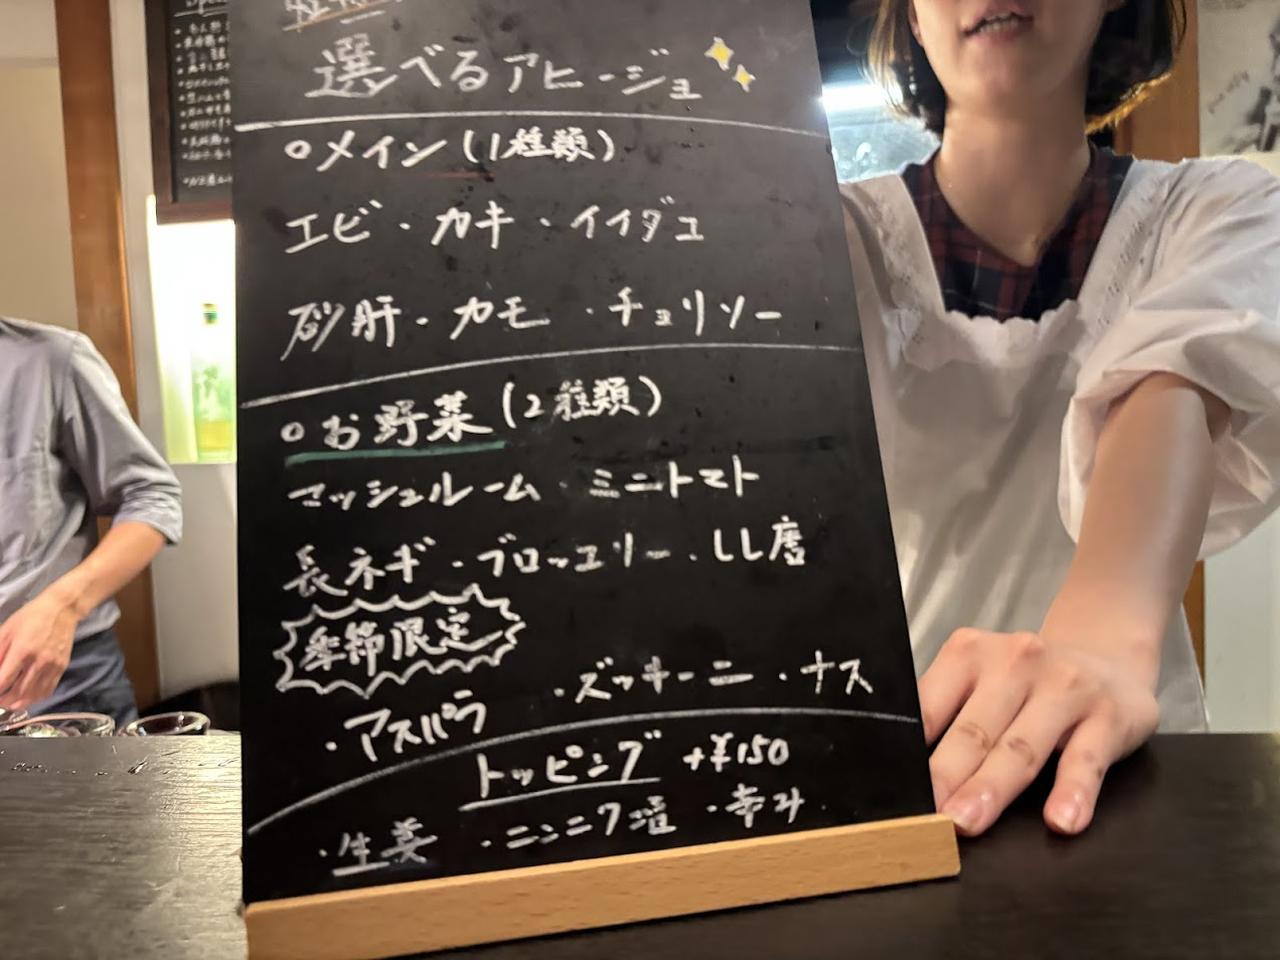 選べるアヒージョ
○メイン(1種類)
エビ・カキ・イイダコ
砂肝・カモ・チョリソー
○お野菜(2種類)
マッシュルーム・ミニトマト
長ネギ・ブロッコリー・しし唐
季節限定
・アスパラ・ズッキーニ・ナス
トッピング +¥150
・生姜・ニンニク増・辛み